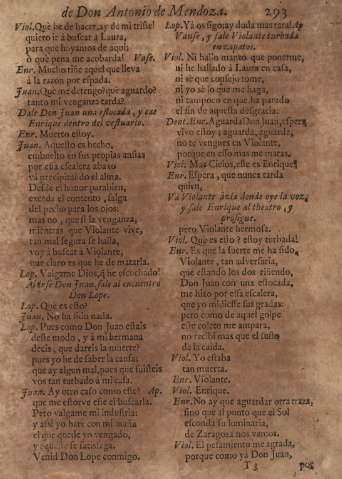 de Don Antonio de Mendoza. 293
Viol. Què he de hacer, ay de mi triste!
quiero ir à buscar à Laura,
para que huyamos de aqui;
ò què pena me acobarda! Vase.
Enr. Mucho riñe aquel que lleva
à la razon por espada.
Juan. Què me detengo? què aguardo?
tanto mi venganza tarda?
Dale Don Juan una estocada, y cae
Enrique dentro del vestuario.
Enr. Muerto estoy.
Juan. Aquesto es hecho,
embuelto en sus propias ansias
por essa escalera abaxo
và precipitando el alma.
Desde el honor parabien,
exceda el contento, salga
del pecho para los ojos;
mas no, que si la venganza,
mientras que Violante vive,
tan mal segura se halla,
voy à buscar à Violante,
que claro es que he de matarla.
Lop. Valgame Dios, què he escuchado!
Al irse Don Juan, sale al encuentro
Don Lope.
Lop. Què es esto?
Juan. No ha sido nada.
Lop. Pues como Don Juan estais
deste modo, y à mi hermana
decis, que dareis la muerte?
pues yo he de saber la causa;
que ay algun mal, pues que fuisteis
vos tan turbado à mi casa.
Juan. Ay otro caso como este! Ap.
que me estorve este el buscarla.
Pero valgame mi industria:
y assi yo harè con mi maña
el que quede yo vengado,
y aqueste se satisfaga.
Venid Don Lope conmigo.
Lop. Yà os sigo, ay duda mas rara! Ap
Vanse, y sale Violante turbada
en zapatos.
Viol. Ni hallo manto que ponerme,
ni he hallado à Laura en casa,
ni sè què consejo tome,
ni yo sè lo que me haga,
ni tampoco en què ha parado
el fin de aquesta desgracia:
Dent. Enr. Aguarda Don Juan, espera,
vivo estoy; aguarda, aguarda,
no te vengues en Violante,
porque en esso mas me matas.
Viol. Mas Cielos, este es Enrique!
Enr. Espera, que nunca tarda
quien,
Và Violante àzia donde oye la voz,
y sale Enrique al theatro, y
prosigue.
pero Violante hermosa.
Viol. Què es esto? estoy turbada!
Enr. Es que la suerte me ha sido,
Violante, tan adversaria,
que estando los dos riñendo,
Don Juan con una estocada,
me hizo por essa escalera,
que yo midiesse sus gradas:
pero como de aquel golpe
este coleto me ampara,
no recibì mas que el susto
de la caida.
Viol. Yo estaba
tan muerta.
Enr. Violante.
Viol. Enrique.
Enr. No ay que aguardar otra traza,
sino que al punto que el Sol
esconda su luminaria,
de Zaragoza nos vamos.
Viol. El pensamiento me agrada,
porque como yà Don Juan,
T 3 pos